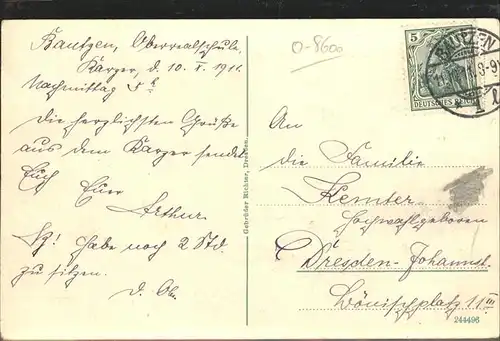 Bautzen, Oberrealschule,
Karzer, d. 10. X. 1911.
Nachmittag 5 h
Die herzlichsten Grüße
aus dem Karzer sendet
Euch Euer
Arthur
Ng! Habe noch 2 Std
zu sitzen.
d. Ob.
Gebrüder Richter, Dresden.
0-8600
5
DEUTSCHES REICH
BAUTZEN
8-9
An
die Familie
Kemter
Hochwohlgeboren
Dresden-Johannst.
Wönischplatz 11 III
244496